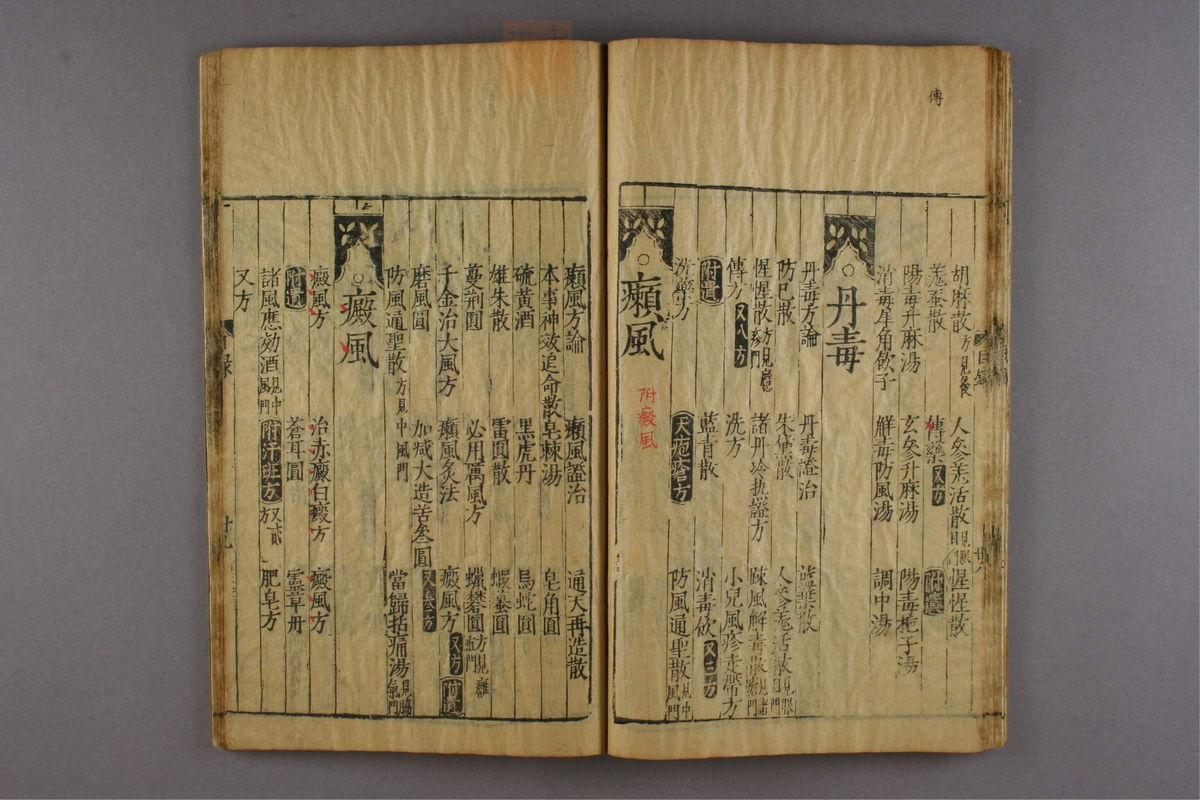 傳
胡麻散 方見後 人參羗活散 眼門 惺惺散
羗蚕散 傅藥 又方 附遺
陽毒升麻湯 玄參升麻湯 陽毒梔子湯
消毒犀角飲子 觧毒防風湯 調中湯
丹毒
丹毒方論 丹毒證治 藍葉散
防巳散 朱黛散 人參羗活散
惺惺散 諸丹冷熱證方 踈風解毒散
傅方 又八方 洗方 小兒風疹走帶方
附遺 藍青散 消毒飲 又二方
洗藥方 天疱瘡方 防風通聖散 見中風門
癩風
附癜風
癩風方論 癩風證治 通天再造散
本事神效追命散 皂棘湯 皂角圓
硫黃酒 黑虎丹 烏蛇圓
雄朱散 雷圓散 蝦蟇圓
蔓荆圓 必用萬風方 蠟礬圓
千金治大風方 癩風炙法 癜風方 又方 附遺
磨風圓 加减大造苦參圓
防風通聖散 方見中風門 當歸拈痛湯
癜風
癜風方 治赤癜白癜方 癜風方
附遺 蒼耳圓 靈草丹
諸風應効酒 見中風門 附汗斑方 肥皂方
又方